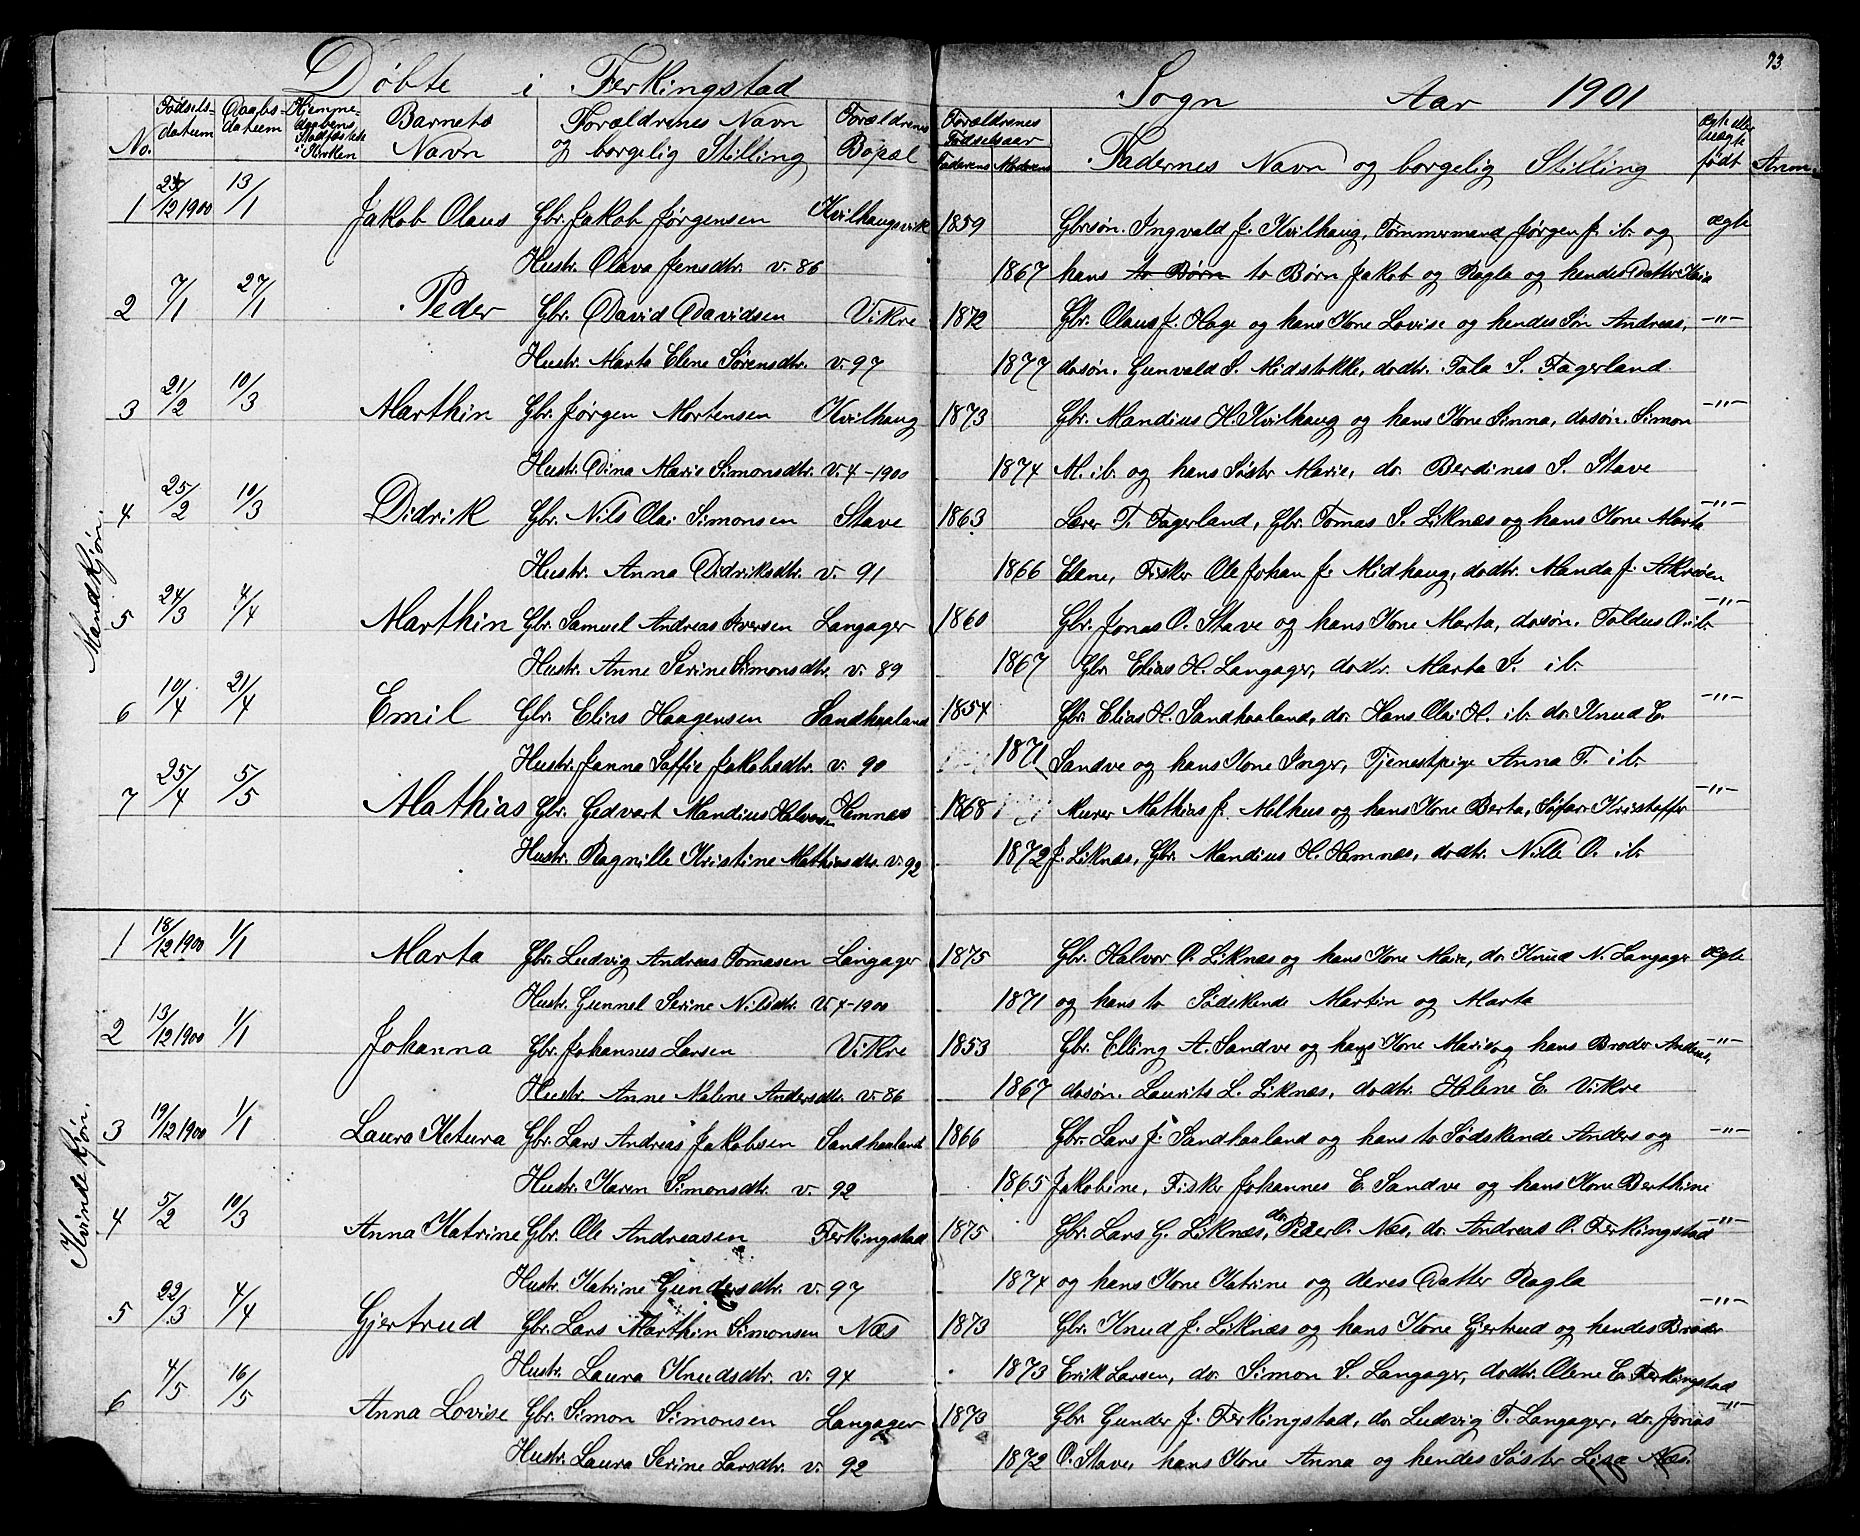 73
Døbte i Ferkingstad Sogn Aar 1901
No. Fødsels-datum Daabs-datum Hjemme-daabens Stadfæstelse i Kirken Barnets Navn Forældrenes Navn og borgelig Stilling Forældrenes Bopæl Forældrenes Fødselsaar Faderens Moderens Fadernes Navn og borgelig Stilling ægte eller uægte født Anm.
Mandkjøn.
1 24/12 1900 13/1 Jakob Olaus Gbr. Jakob Jørgensen Kvilhaugsvik 1859 Gbrsøn. Ingvald J. Kvilhaug, Tømmermand Jørgen J. ib. og ægte
Hustr. Olava Jensdtr. v. 86 1867 hans to Børn to Børn Jakob og Ragla og hendes Datter
2 7/1 27/1 Peder Gbr. David Davidsen Vikre 1872 Gbr. Olaus J. Hage og hans Kone Lovise og hendes Søn Andreas, -"-
Hustr. Marta Elene Sørensdtr. v. 97 1877 dosøn. Gunvald S. Midstokke, dodtr. Tala S. Fagerland.
3 21/2 10/3 Marthin Gbr. Jørgen Mortensen Kvilhaug 1873 Gbr. Mandius H. Kvilhaug og hans Kone Sinna, dosøn. Simon -"-
Hustr. Dina Marie Simonsdtr. v. 4-1900 1874 M. ib. og hans Søster Marie, do. Berdines S. Stave
4 25/2 10/3 Didrik Gbr. Nils Olai Simonsen Stave 1863 Lærer T. Fagerland, Gbr. Tomas S. Liknes og hans Kone Marta -"-
Hustr. Anna Didriksdtr. v. 91 1866 Elene, Fisker Ole Johan J. Midhaug, dodtr. Manda J. Akreøen
5 24/3 4/4 Marthin Gbr. Samuel Andreas Iversen Langager 1860 Gbr. Jonas O. Stave og hans Kone Marta, dosøn. Toldus O. ib. -"-
Hustr. Anne Serine Simonsdtr. v. 89 1867 Gbr. Elias H. Langager, dodtr. Marta I. ib.
6 10/4 21/4 Emil Gbr. Elias Haagensen Sandhaaland 1854 Gbr. Elias H. Sandhaaland, do. Hans Olai H. ib. do. Knud E. -"-
Hustr. Janna Soffie Jakobsdtr. v. 90 1871 Sandve og hans Kone Inger, Tjenestpige Anna T. ib.
7 25/4 5/5 Mathias Gbr. Gedvart Mandius Halvorsen Hemnes 1868 Murer Mathias J. Melhus og hans Kone Berta, Søfar. Kristoffer -"-
Hustr. Ragnille Kristine Mathiasdtr. v. 92 1872 J. Liknes, Gbr. Mandius H. Hemnes, dodtr. Nille O. ib.
Kvindekjøn.
1 18/12 1900 1/1 Marta Gbr. Ludvig Andreas Tomasen Langager 1875 Gbr. Halvor O. Liknes og hans Kone do. Knud N. Langager ægte
Hustr. Gunnel Serine Nilsdtr. v. 4-1900 1871 og hans to Sødskende Martin og Marta
2 13/12 1900 1/1 Johanna Gbr. Johannes Larsen Vikre 1853 Gbr. Elling A. Sandve og hans Kone Marie og hans Broder Andreas, -"-
Hustr. Anne Malene Andersdtr. v. 86 1867 dosøn. Laurits L. Liknes, dodtr. Helene E. Vikre
3 19/12 1900 1/1 Laura Ketura Gbr. Lars Andreas Jakobsen Sandhaaland 1866 Gbr. Lars J. Sandhaaland og hans to Sødskende Anders og -"-
Hustr. Karen Simonsdtr. v. 92 1865 Jakobine, Fisker Johannes E. Sandve og hans Kone Berthine
4 5/2 10/3 Anna Katrine Gbr. Ole Andreasen Ferkingstad 1875 Gbr. Lars G. Liknes, do. Peder O. Næs, do. Andreas O. Ferkingstad -"-
Hustr. Katrine Gundersdtr. v. 97 1874 og hans Kone Katrine og deres Datter Ragla
5 22/3 4/4 Gjertrud Gbr. Lars Marthin Simonsen Næs 1873 Gbr. Knud J. Liknes og hans Kone Gjertrud og hendes Broder -"-
Hustr. Laura Knudsdtr. v. 94 1873 Erik Larsen, do. Simon S. Langager, dodtr. Olene E. Ferkingstad
6 4/5 16/5 Anna Lovise Gbr. Simon Simonsen Langager 1873 Gbr. Gunder J. Ferkingstad, do. Ludvig T. Langager, do. Jonas -"-
Hustr. Laura Serine Larsdtr. v. 92 1872 O. Stave, hans Kone Anna og hendes Søster Lisa Næs.